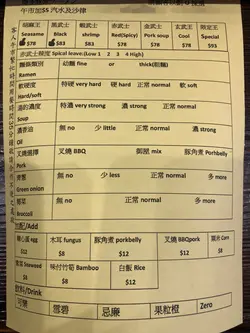 午市加$5 汽水及沙律
白武士 黑武士 紅武士 赤武士 金武士 玄武士 限定王
Seasame Black shrimp Red(Spicy) Pork soup Cool Special
$78 $83 $83 $78 $78 $78 $93
赤武士辣度 Spicy leave(Low 1 2 3 4 High)
麵類類別 幼麵 fine or thick(粗麵)
Ramen
軟硬度 特硬 very hard 硬 hard 正常 normal 軟 soft
Hard/soft
湯的濃度 特濃 very strong 濃 strong 正常 normal
Soup
濃香油 無 no 少 little 正常 normal 濃 strong
Oil
叉燒選擇 叉燒 BBQ 御屋 mix 豚角煮 Porkbelly
Pork
青蔥 無 no 少 less 正常 normal 多 more
Green onion
無 no 正常 normal 多 more
broccoli
/Add
egg 木耳 fungus 豚角煮 porkbelly 叉燒 BBQpork 粟米 Corn
$12 $8 $12 $12 $8
Seaweed 味付竹筍 Bamboo 白飯 Rice
$8 $8 $12
飲料/Drink
可樂 雪碧 忌廉 果粒橙 Zero